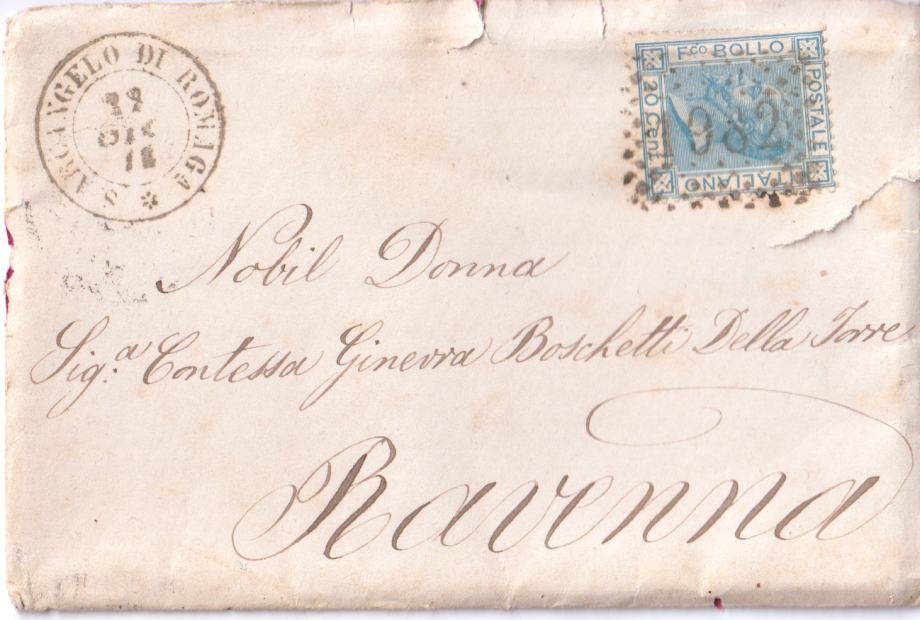 S. ARCANGELO DI ROMAGA
22
DIC
Fco BOLLO
POSTALE
ITALIANO
20 Cent
Nobil Donna
Sig.ª Contessa Ginevra Boschetti Della Torre
Ravenna